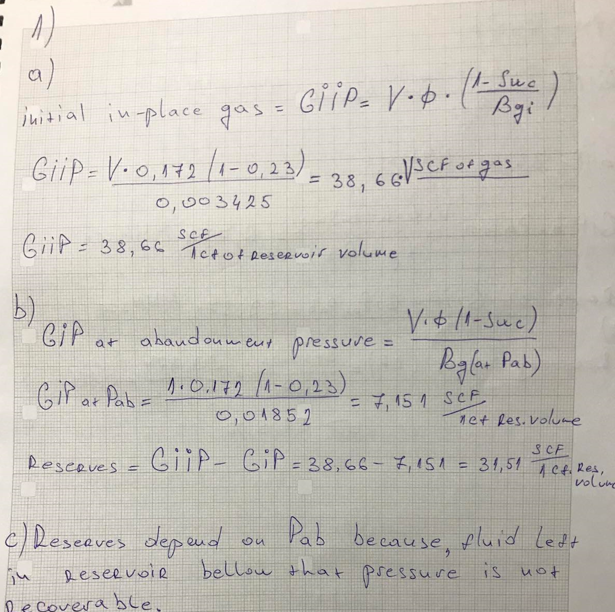 1)
a)
initial in-place gas = GiiP = V · ϕ · (1-Swc / Bgi)
GiiP = V · 0,172 (1-0,23) / 0,003425 = 38,66 · V SCF of gas
GiiP = 38,66 SCF / 1cf of Reservoir volume
b)
GiP at abandonment pressure = V · ϕ (1-Swc) / Bg(at Pab)
GiP at Pab = 1 · 0.172 (1-0,23) / 0,01852 = 7,151 SCF / 1cf Res. volume
Reserves = GiiP - GiP = 38,66 - 7,151 = 31,51 SCF / 1cf. Res, volume
c) Reserves depend on Pab because, fluid left
in reservoir bellow that pressure is not
recoverable.